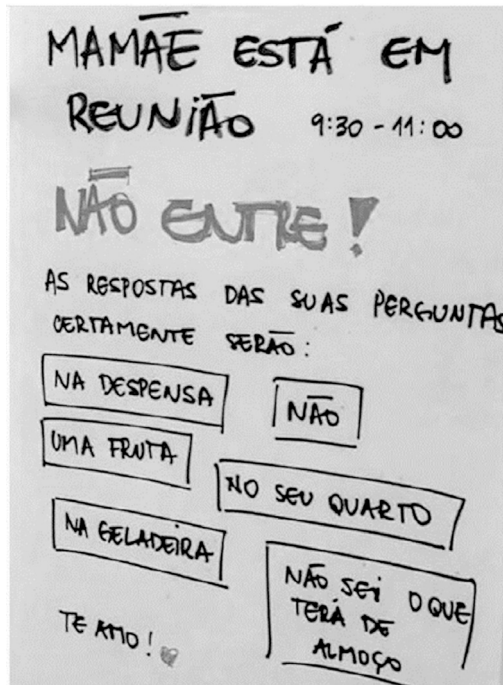 MAMÃE ESTÁ EM
REUNIÃO 9:30 - 11:00
NÃO ENTRE!
AS RESPOSTAS DAS SUAS PERGUNTAS
CERTAMENTE SERÃO:
NA DESPENSA
NÃO
UMA FRUTA
NO SEU QUARTO
NA GELADEIRA
NÃO SEI O QUE
TERÁ DE
ALMOÇO
TE AMO!